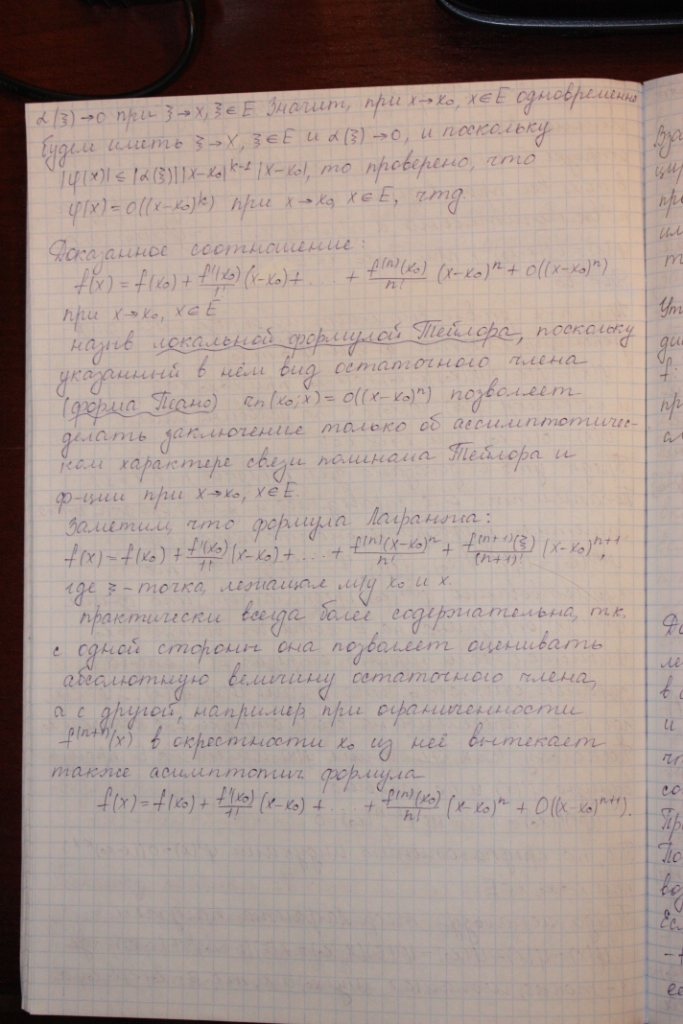 α(ξ)→0 при ξ→x, ξ∈E. Значит, при x→x₀, x∈E одновременно
будем иметь ξ→x, ξ∈E и α(ξ)→0, и поскольку
|φ(x)|≤|α(ξ)||x-x₀|^{k-1}|x-x₀|, то проверено, что
φ(x)=o((x-x₀)^k) при x→x₀, x∈E, чтд.
Доказанное соотношение:
f(x)=f(x₀)+f'(x₀)/1!(x-x₀)+...+f^{(n)}(x₀)/n!(x-x₀)^n+o((x-x₀)^n)
при x→x₀, x∈E
назыв локальной формулой Тейлора, поскольку
указанный в нём вид остаточного члена
(форма Пеано) rn(x₀;x)=o((x-x₀)^n) позволяет
делать заключение только об ассимптотичес-
ком характере связи полинома Тейлора и
ф-ции при x→x₀, x∈E.
Заметим, что формула Лагранжа:
f(x)=f(x₀)+f'(x₀)/1!(x-x₀)+...+f^{(n)}(x-x₀)^n/n!+f^{(n+1)}(ξ)/(n+1)!(x-x₀)^{n+1},
где ξ-точка, лежащая м/у x₀ и x.
практически всегда более содержательна, т.к.
с одной стороны она позволяет оценивать
абсолютную величину остаточного члена,
а с другой, например, при ограниченности
f^{(n+1)}(x) в окрестности x₀ из неё вытекает
также асимптотич формула
f(x)=f(x₀)+f'(x₀)/1!(x-x₀)+...+f^{(n)}(x₀)/n!(x-x₀)^n+O((x-x₀)^{n+1}).